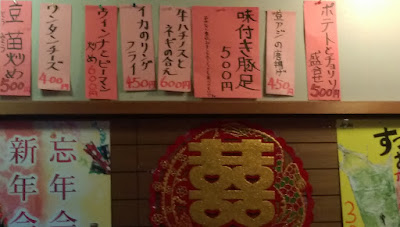 ポテトとチョリソ
盛合せ
500円
豆アジの唐揚げ
450円
味付き豚足
500円
牛ハチノスと
ネギの合え
600円
イカのリング
フライ
450円
ウィンナとピーマン
炒め
600円
ワンタンチーズ
400円
豆苗炒め
500円
囍
忘年会
新年会